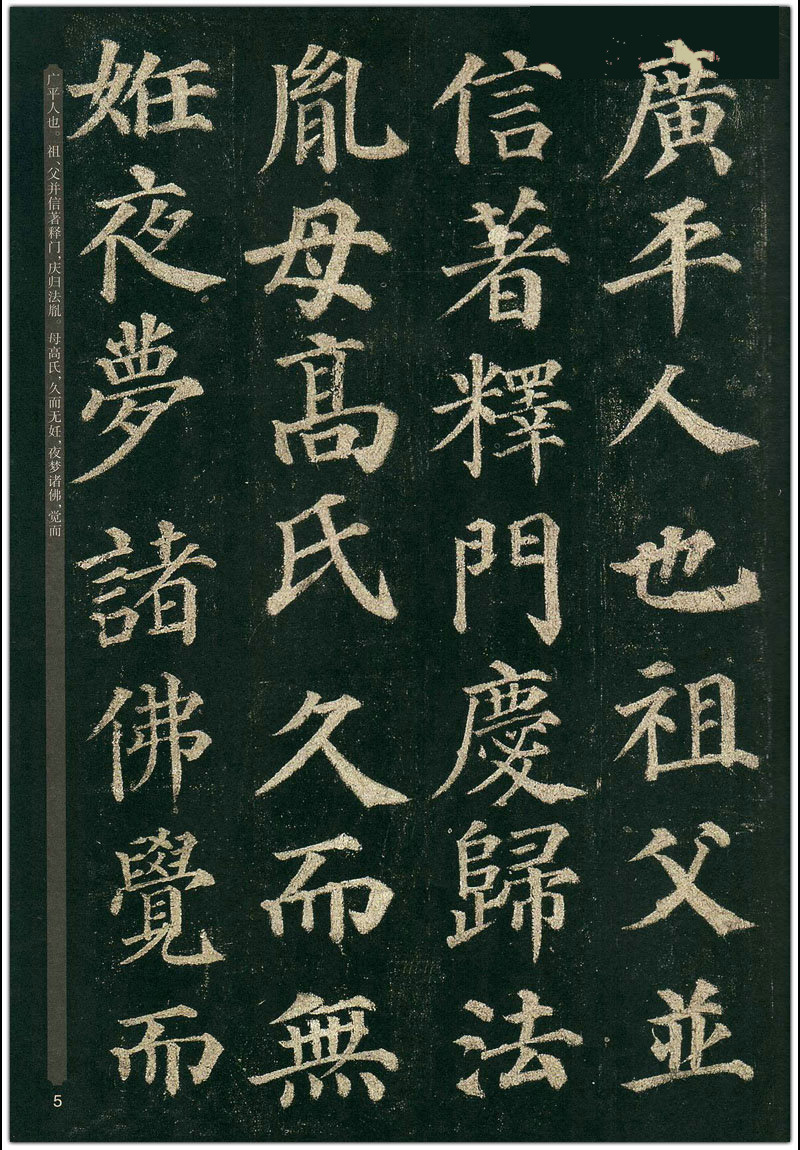 廣平人也祖父並
信著釋門慶歸法
胤母高氏久而無
姙夜夢諸佛覺而
广平人也。祖、父并信著释门，庆归法胤。母高氏，久而无妊，夜梦诸佛，觉而
5